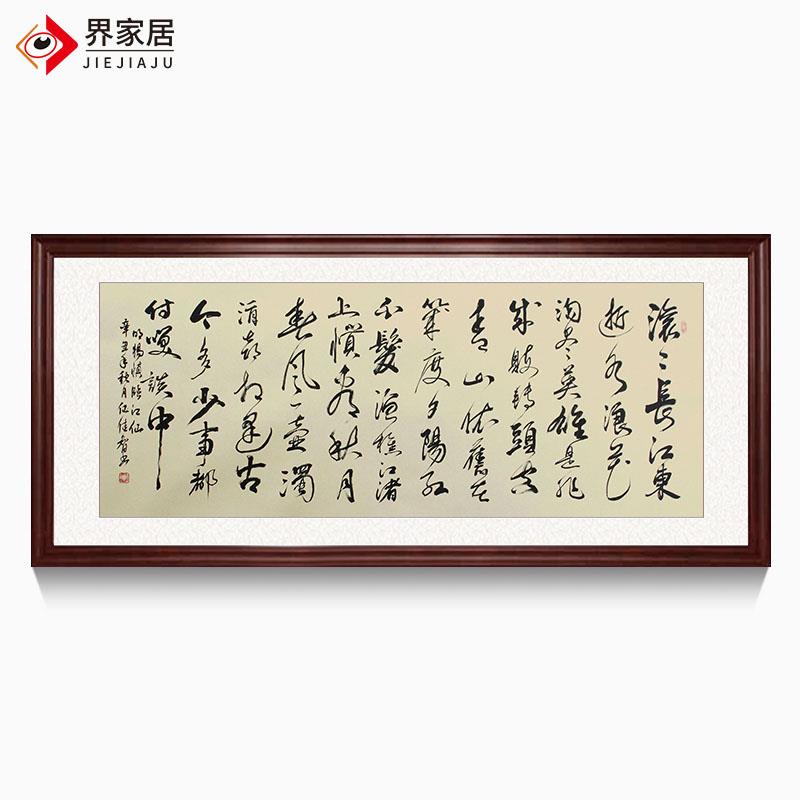 界家居
JIEJIAJU
滚〻長江東
逝水浪花
淘尽英雄是非
成敗轉頭空
青山依舊在
幾度夕陽紅
白髮漁樵江渚
上慣看秋月
春風一壺濁
酒喜相逢古
今多少事都
付笑談中
明楊慎臨江仙
辛丑年秋月